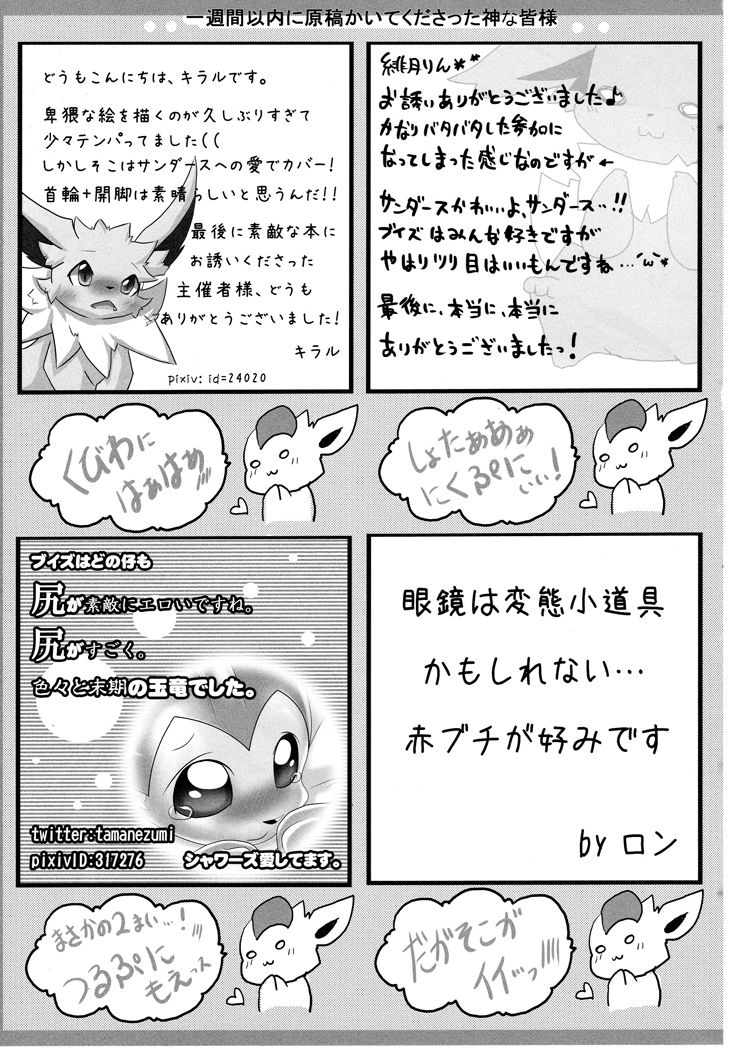 一週間以内に原稿かいてくださった神な皆様
どうもこんにちは、キラルです。
卑猥な絵を描くのが久しぶりすぎて
少々テンパってました((
しかしそこはサンダースへの愛でカバー!
首輪+開脚は素晴らしいと思うんだ!!
最後に素敵な本に
お誘いくださった
主催者様、どうも
ありがとうございました!
キラル
pixiv: id=24020
緋月りん**
お誘いありがとうございました♪
かなりバタバタした参加に
なってしまった感じなのですが←
サンダースかわいいよ、サンダース…!!
ブイズはみんな好きですが
やはりツリ目はいいもんですね…´ω`*
最後に、本当に、本当に
ありがとうございましたっ!
くびわに
はぁはぁ
しょたぁぁぁ
にくぷに
いい!
ブイズはどの仔も
尻が素敵にエロいですね。
尻がすごく。
色々と末期の玉竜でした。
twitter:tamanezumi
pixivID:317276
シャワーズ愛してます。
眼鏡は変態小道具
かもしれない…
赤ブチが好みです
by ロン
まさかの2まい…!
つるぷに
もえっス
だがそこが
イイッっ